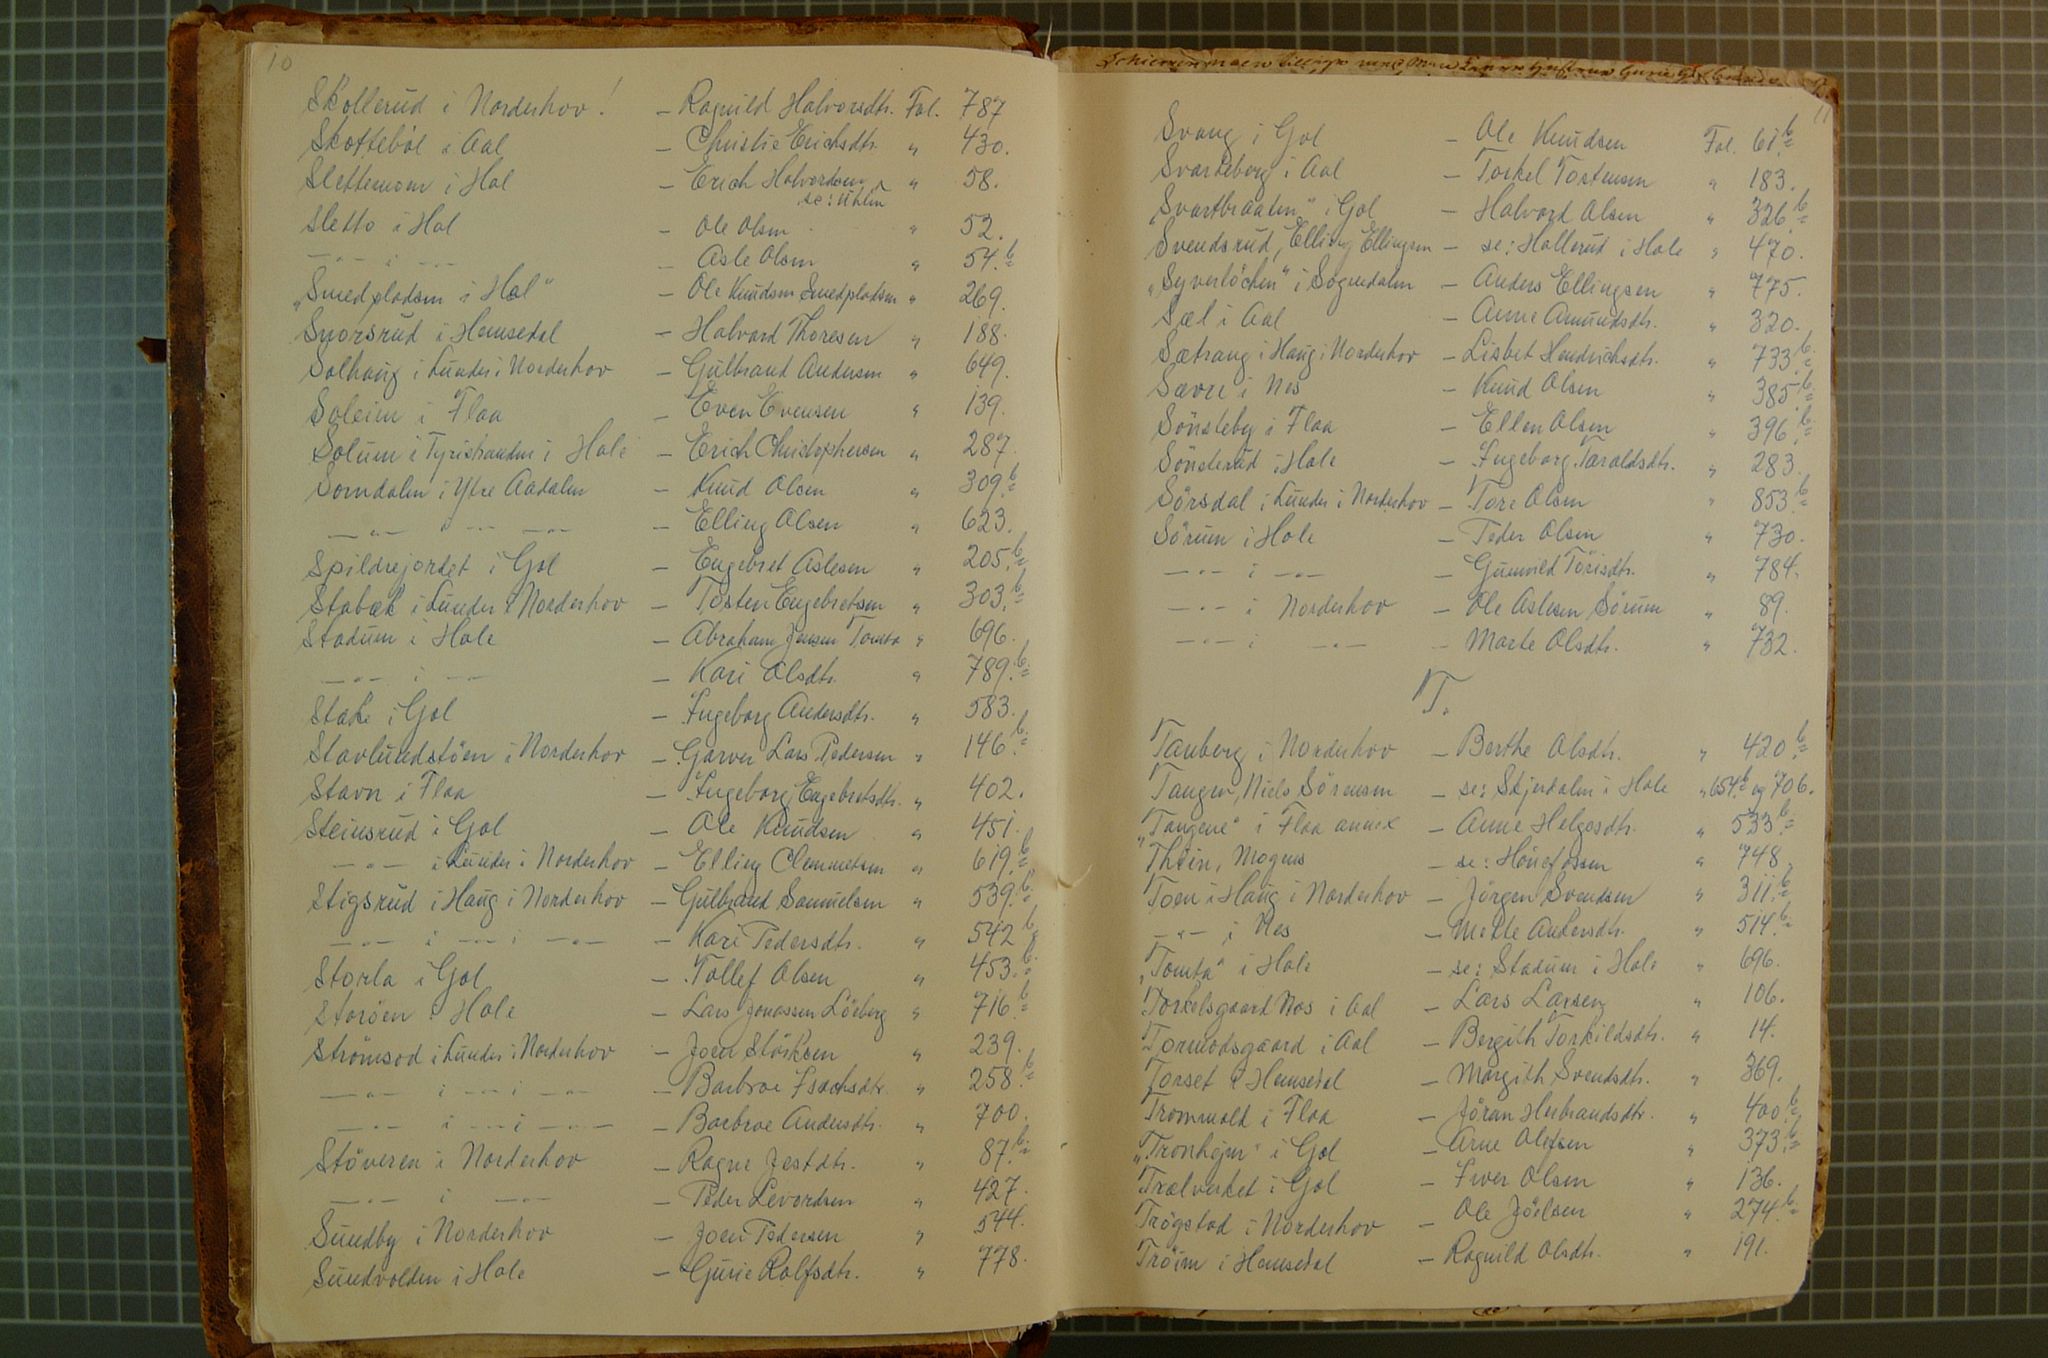 10
Skollerud i Norderhov! — Ragnild Halvorsdtr. Fol. 787
Skottebøl i Aal — Christie Erichsdtr. " 430.
Slettemoen i Hol — Erich Halvordsen " 58.
se: Uhlen
Sletto i Hol — Ole Olsen " 52.
—"— i —"— — Asle Olsen " 54.b
"Smedpladsen i Hol" — Ole Knudsen Smedpladsen " 269.
Snorsrud i Hemsedal — Halvard Thoresen " 188.
Solhaug i Lunder i Norderhov — Gulbrand Andersen " 649.
Soleim i Flaa — Even Evensen " 139.
Solum i Tyristranden i Hole — Erich Christophersen " 287.
Somdalen i Ytre Aadalen — Knud Olsen " 309.b
—"— i —"— —"— — Elling Olsen " 623.
Spildrejordet i Gol — Engebret Aslesen " 205.b
Stabæk i Lunder i Norderhov — Tosten Engebretsen " 303.b
Stadum i Hole — Abraham Jensen Tomta " 696.
—"— i —"— — Kari Olsdtr. " 789.b
Stake i Gol — Ingeborg Andersdtr. " 583.
Stavlundstöen i Norderhov — Garver Lars Pedersen " 146.b
Stavn i Flaa — Ingeborg Engebretsdtr. " 402.
Steinsrud i Gol — Ole Knudsen " 451.
—"— i Lunder i Norderhov — Elling Clemmetsen " 619.b
Stigsrud i Haug i Norderhov — Gulbrand Samuelsen " 539.b
—"— i —"— i —"— — Kari Pedersdtr. " 542 b
Storla i Gol — Tollef Olsen " 453.b
Storöen i Hole — Lars Jonassen Löeberg " 716.b
Strömsod i Lunder i Norderhov — Joen Störksen " 239.
—"— i —"— i —"— — Barbroe Isachsdtr. " 258.b
—"— i —"— i —"— — Barbroe Andersdtr. " 700.
Stöveren i Norderhov — Ragne Jestdtr. " 87.b
—"— i —"— — Peder Levordsen " 427.
Sundby i Norderhov — Joen Pedersen " 544.
Sundvolden i Hole — Gurie Rolfsdtr. " 778.
11
Svang i Gol — Ole Knudsen Fol. 61.b
Svarteberg i Aal — Torkel Tostensen " 183.
"Svartbraaten" i Gol — Halvord Olsen " 326.b
Svendsrud, Elling Ellingsen — se: Hallerud i Hole " 470.
"Syverlöchen" i Sognedalen — Anders Ellingsen " 775.
Sæl i Aal — Anne Amundsdtr. " 320.
Sætrang i Haug i Norderhov — Lisbet Hendrichsdtr. " 733.b
Sævre i Nes — Knud Olsen " 385.b
Sönsteby i Flaa — Ellen Olsen " 396.b
Sönsterud i Hole — Ingeborg Taraldsdtr. " 283.
Sörsdal i Lunder i Norderhov — Tore Olsen " 853.b
Sörum i Hole — Peder Olsen " 730.
—"— i —"— — Gunnild Törisdtr. " 784.
—"— i Norderhov — Ole Aslesen Sörum " 89.
—"— i —"— — Marte Olsdtr. " 732.
T.
Tanberg i Norderhov — Berthe Olsdtr. " 420.b
Tangen, Niels Sörensen — se: Stjerdalen i Hole " 654.b og 706.
"Tangene" i Flaa annex — Anne Helgesdtr. " 533.b
Thiin, Mogens — se: Hönefossen " 748.
Toen i Haug i Norderhov — Jörgen Svendsen " 311.b
—"— i Nes — Mette Andersdtr. " 514.b
"Tomta" i Hole — se: Stadum i Hole " 696.
Torkelsgaard Nos i Aal — Lars Larsen " 106.
Tormodsgaard i Aal — Bergith Torkildsdtr. " 14.
Torset i Hemsedal — Margith Svendsdtr. " 369.
Tromvald i Flaa — Jöran Herbrandsdtr. " 400.b
"Tronhejm" i Gol — Arne Olefsen " 373.b
Trælverket i Gol — Iver Olsen " 136.
Trögstad i Norderhov — Ole Jöelsen " 274.b
Tröim i Hemsedal — Ragnild Olsdtr. " 191.